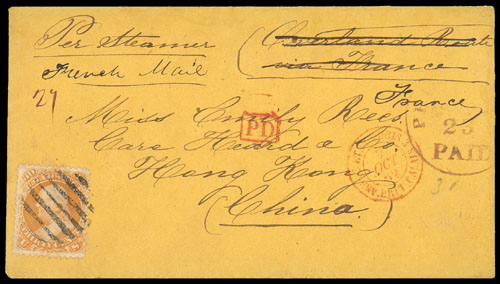 Per Steamer
French Mail
(Overland Route
via France
France
27
Miss Emily Rees
Care Heard & Co.
PD
Hong Kong
(China)
OCT
25
PAID